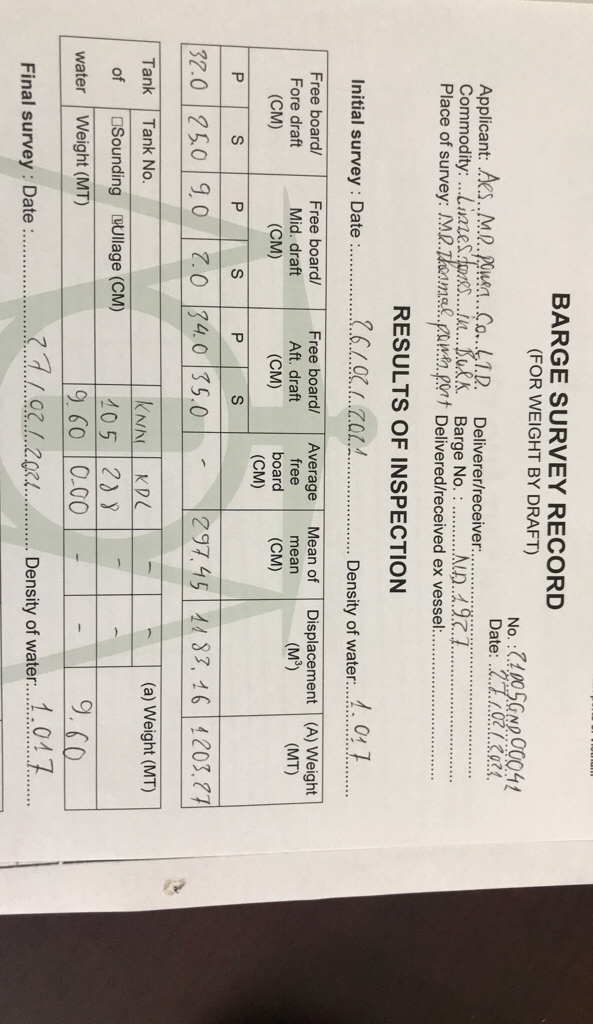 BARGE SURVEY RECORD
(FOR WEIGHT BY DRAFT)
No.: 21005GND00041
Date: 27/02/2021
Applicant: AES. M.D. Power Co. LTD. Deliverer/receiver:
Commodity: Limestones in Bulk Barge No.: N.D. 1927
Place of survey: M.D. Thermal power port Delivered/received ex vessel:
RESULTS OF INSPECTION
Initial survey : Date : 26/02/2021 Density of water: 1.017
Free board/ Fore draft (CM) Free board/ Mid. draft (CM) Free board/ Aft. draft (CM) Average free board (CM) Mean of mean (CM) Displacement (M³) (A) Weight (MT)
P S P S P S
32.0 25.0 9.0 2.0 34.0 35.0 - 297.45 1183.16 1203.27
Tank of water Tank No. KNM KDL - - (a) Weight (MT)
□Sounding ☑Ullage (CM) 105 288 - -
Weight (MT) 9.60 0.00 - - 9.60
Final survey : Date : 27/02/2021 Density of water: 1.017